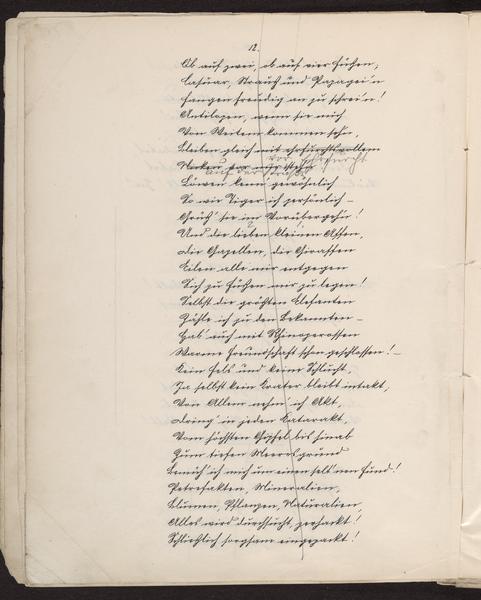 12.
Ob auf zwei, ob auf vier Füßen,
Casuar, Strauß und Papagei'n
Fangen freudig an zu schrei'n!
Antilopen, wenn sie mich
Von Weitem kommen sehn,
Bleiben gleich mit ehrfurchtsvollem
vor Ehrfurcht
Nicken vor mir stehn
auf der
Löwen kenn' gewöhnlich
So wie Tiger ich persönlich –
Grüß' sie im Vorübergehn!
Und die lieben kleinen Affen,
Die Gazellen, die Giraffen
Eilen alle mir entgegen
Sich zu Füßen mir zu legen!
Selbst die größten Elefanten
Zähle ich zu den Bekannten –
Hab' auch mit Rhinozerossen
Warme Freundschaft schon geschlossen! –
Kein Fels und keine Schlucht,
Ja selbst kein Crater bleibt intakt,
Von Allem nehm' ich Akt,
Dring' in jeden Catarakt,
Vom höchsten Gipfel bis hinab
Zum tiefen Meeresgrund
Bemüh' ich mich um einen selt'nen Fund!
Petrefakten, Mineralien,
Blumen, Pflanzen, Naturalien,
Alles wird durchsucht, gehackt!
Schließlich sorgsam eingepackt!